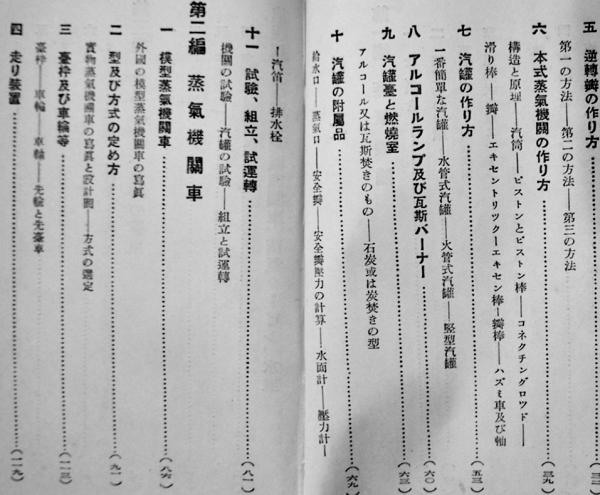 五 逆轉瓣の作り方
第一の方法——第二の方法——第三の方法
六 本式蒸氣機關の作り方…………(三九)
構造と原理——汽筒——ピストンとピストン棒——コネクチングロツド——
滑り棒——瓣——エキセントリツク—エキセン棒—瓣棒——ハズミ車及び軸
七 汽罐の作り方…………(五三)
一番簡單な汽罐——水管式汽罐——火管式汽罐——竪型汽罐
八 アルコールランプ及び瓦斯バーナー…………(六〇)
九 汽罐臺と燃燒室…………(六三)
アルコール又は瓦斯焚きのもの——石炭或は炭焚きの型
十 汽罐の附屬品…………(六九)
給水口——蒸氣口——安全瓣——安全瓣壓力の計算——水面計——壓力計—
—汽笛 排水栓
十一 試驗、組立、試運轉…………(八一)
機關の試驗——汽罐の試驗——組立と試運轉
第二編 蒸氣機關車
一 模型蒸氣機關車…………(八六)
外國の模型蒸氣機關車の寫眞
二 型及び方式の定め方…………(九一)
實物蒸氣機關車の寫眞と設計圖——方式の選定
三 臺枠及び車輪等…………(一一三)
臺枠——車輪——車軸——先輪と先臺車
四 走り裝置…………(一一九)